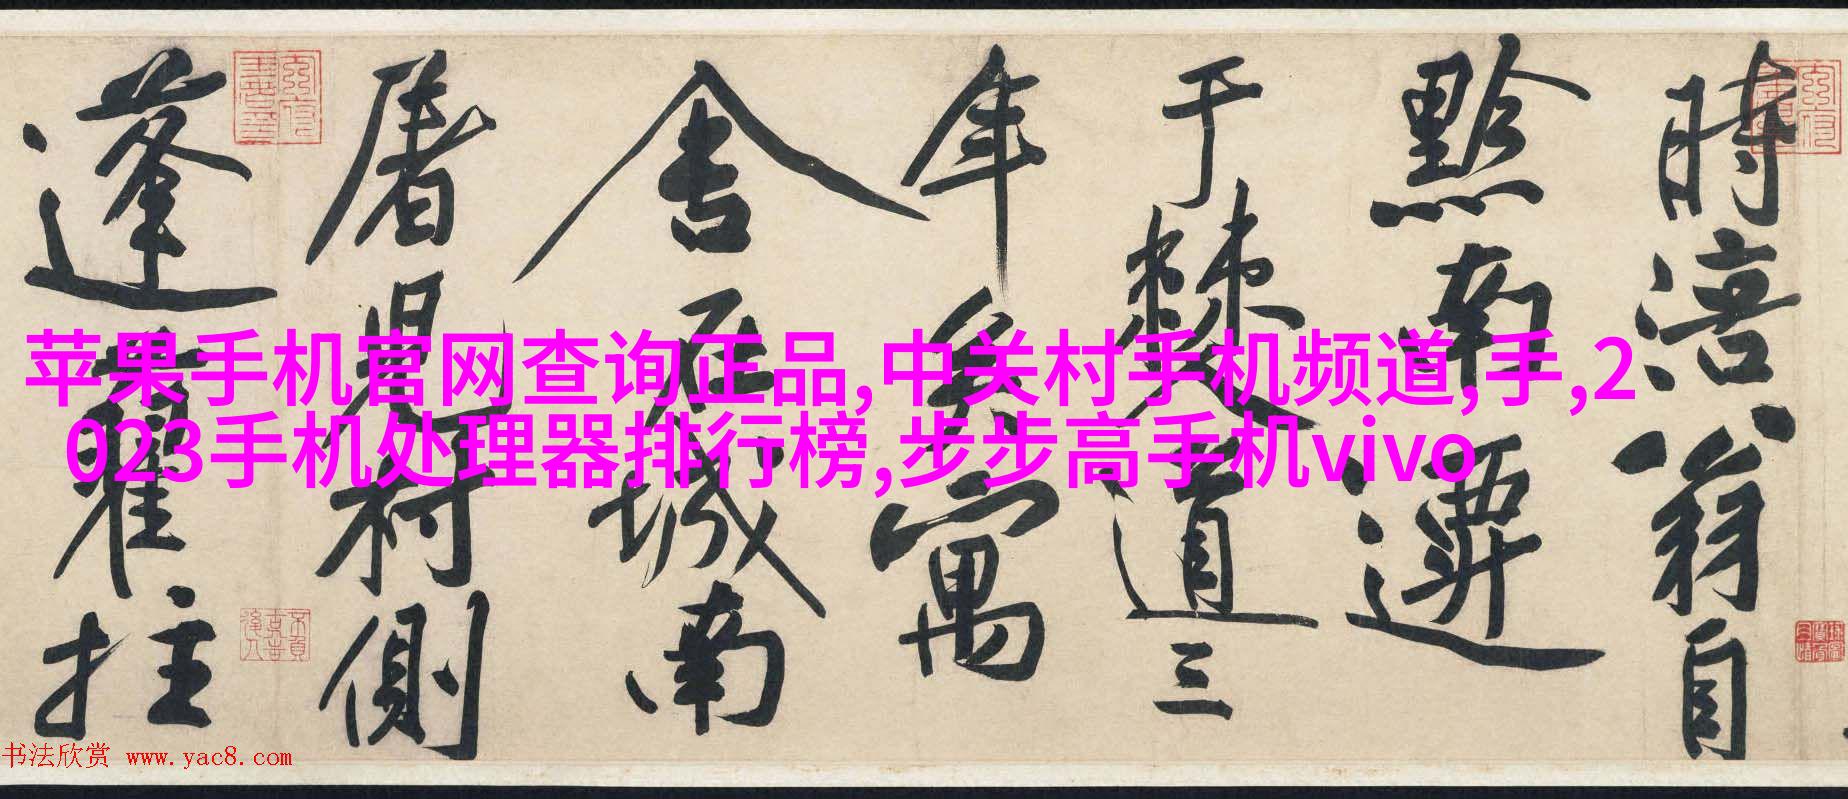 時涪翁自
黔南遷
于僰道三
年矣寓
舍在城南
屠兒村側
蓬藋拄
苹果手机官网查询正品,中关村手机频道,手,2
023手机处理器排行榜,步步高手机vivo
书法欣赏 www.yac8.com